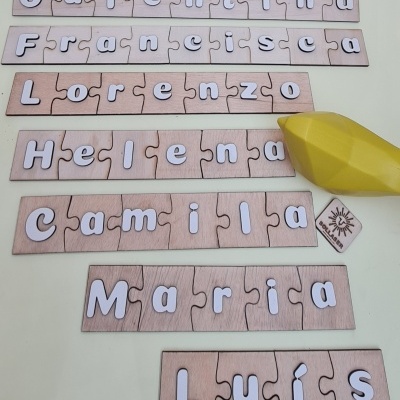 Francisca
Lorenzo
Helena
Camila
Maria
Luís